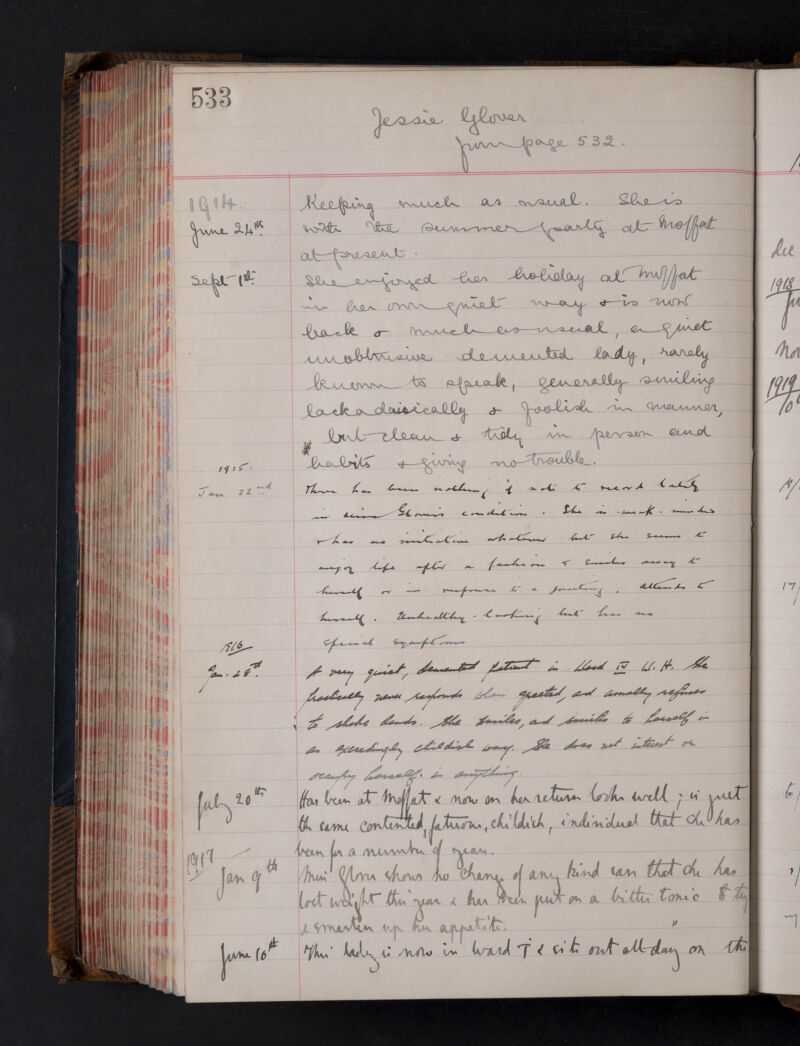 533
Jessie Glover
from page 532.
1914. Keeping much as usual. She is
June 24th. with the summer party at Moffat
at present.
Sept 1st. She enjoyed her holiday at Moffat
in her own quiet way & is now
back & much as usual, a quiet
unobtrusive demented lady, rarely
known to speak, generally smiling
lackadaisically & foolish in manner,
but clean & tidy in person and
habits & giving no trouble.
1915.
Jan 22nd There has been nothing of note to record lately
in Miss Glover's condition. She is weak-minded
& has no initiative whatever but she seems to
enjoy life after a fashion & smiles away to
herself or in response to a greeting. attends to
herself. Unhealthy-looking but has no
special symptoms
1916
Jan. 28th. A very quiet, demented patient in Ward IV W.H. She
practically never responds when greeted, and usually refuses
to shake hands. She smiles, and smirks to herself in
an exceedingly childish way. She does not interest or
occupy herself in anything.
July 20th Has been at Moffat & now on her return looks well; is quiet
the same contented, fatuous, childish, individual that she has
been for a number of years.
1917
Jan 9th Miss Glover shows no change of any kind save that she has
lost weight this year & has been put on a bitter tonic to try
& smarten up her appetite.
June 10th This lady is now in Ward I & sits out all day on the
Dec
1918
Nov
1919
10